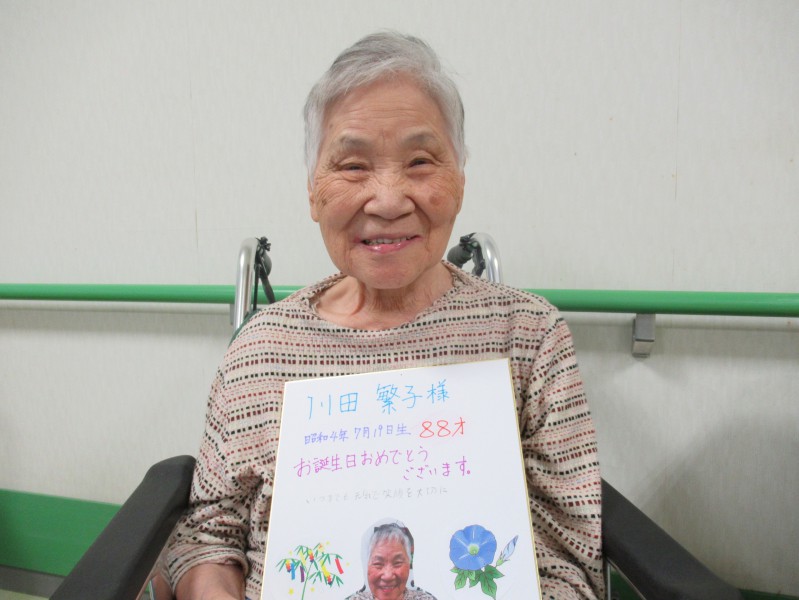 川田 繁子様
昭和4年7月19日生 88才
お誕生日おめでとう
ございます。
いつまでもお元気で笑顔を大切に